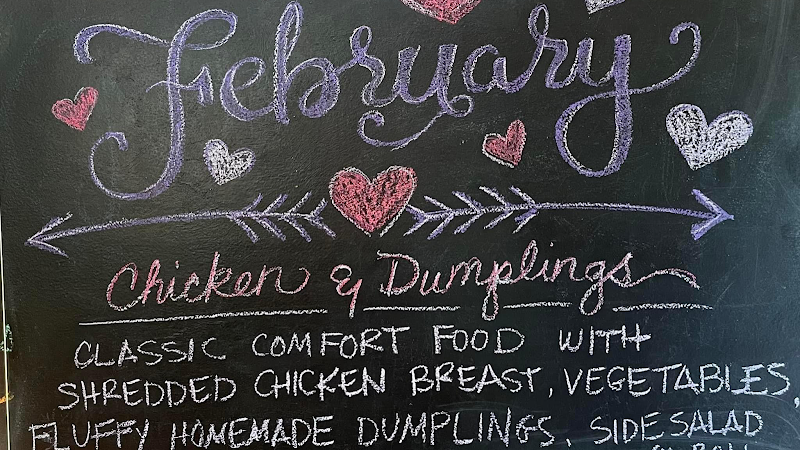 February
Chicken & Dumplings
CLASSIC COMFORT FOOD WITH
SHREDDED CHICKEN BREAST, VEGETABLES,
FLUFFY HOMEMADE DUMPLINGS. SIDE SALAD